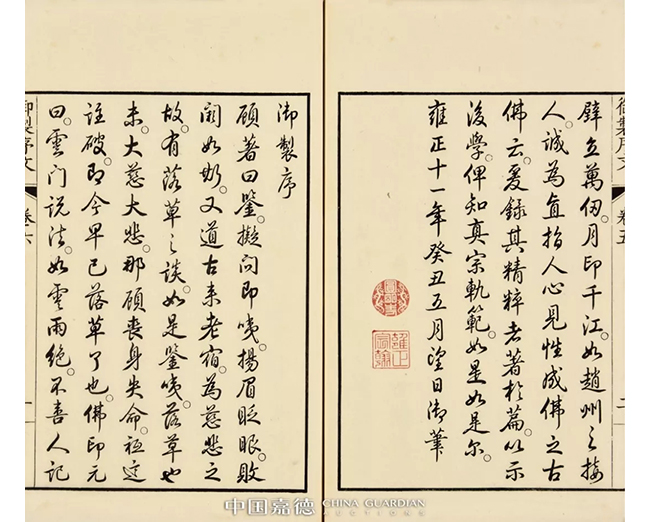 御製序文 卷五 二
壁立萬仞。月印千江。如趙州之接
人。誠為直指人心見性成佛之古
佛云。爰錄其精粹者著於篇。以示
後學。俾知真宗軌範。如是如是尔。
雍正十一年癸丑五月望日御筆
雍正宸翰
御製序
顧著曰鑒。擬問即咦。揚眉眨眼。敗
闕如斯。又道古来老宿。為慈悲之
故。有落草之談。如是鑒咦。落草也
未。大慈大悲。那顧喪身失命。秖這
註破。即今早已落草了也。佛印元
曰。雲门説法。如雲雨絕。不喜人記
御製序文 卷六 一
中国嘉德 CHINA GUARDIAN AUCTIONS